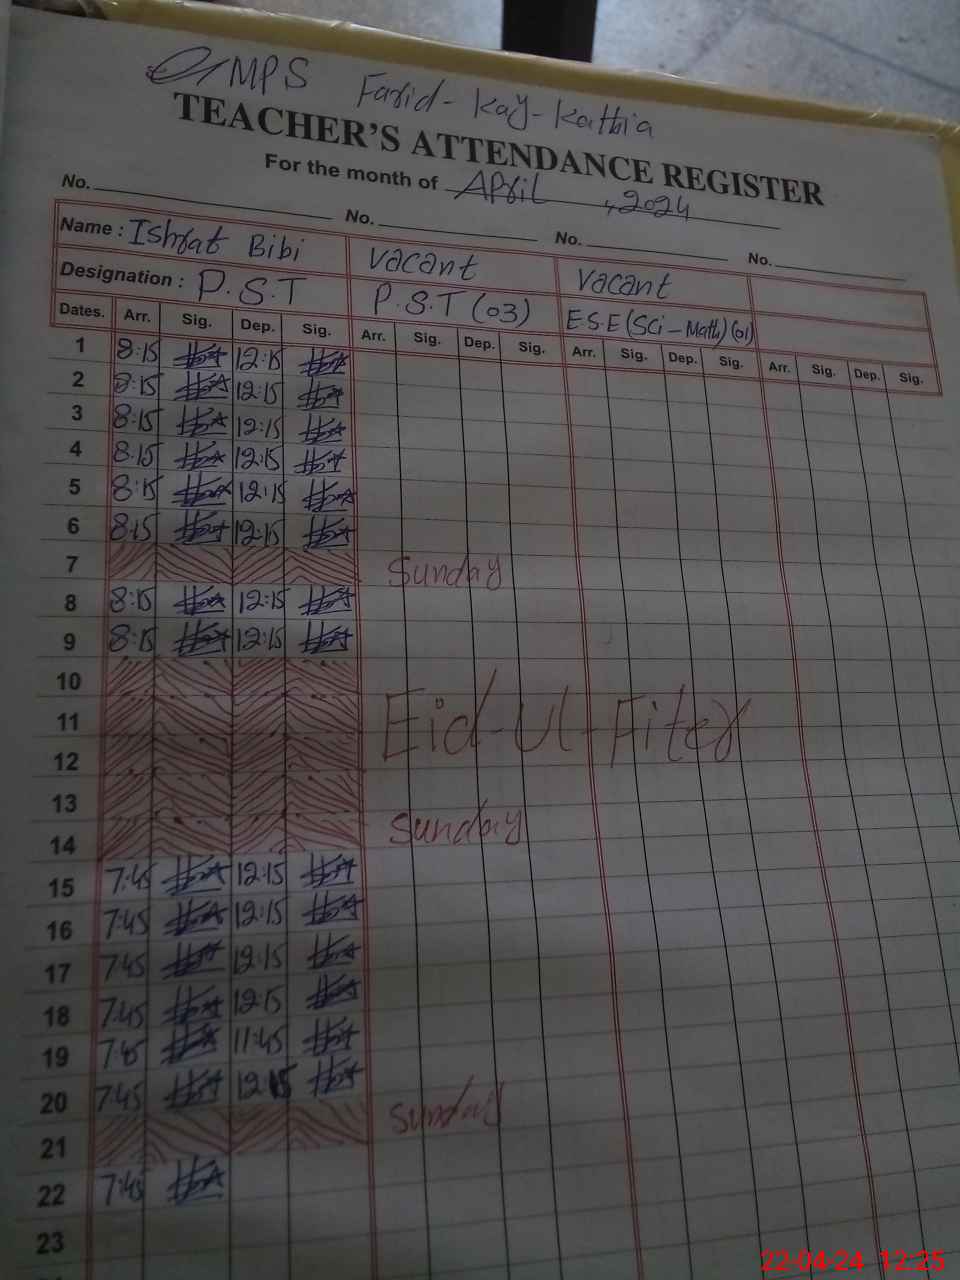 MPS Farid-Kay-Kathia
TEACHER'S ATTENDANCE REGISTER
For the month of April, 2024
No. No. No. No.
Name: Ishrat Bibi Vacant Vacant
Designation: P.S.T P.S.T (03) E.S.E (Sci-Math) (01)
Dates. Arr. Sig. Dep. Sig. Arr. Sig. Dep. Sig. Arr. Sig. Dep. Sig. Arr. Sig. Dep. Sig.
1 8:15 12:15
2 8:15 12:15
3 8:15 12:15
4 8:15 12:15
5 8:15 12:15
6 8:15 12:15
7 Sunday
8 8:15 12:15
9 8:15 12:15
10
11 Eid-Ul-Fiter
12
13
14 Sunday
15 7:45 12:15
16 7:45 12:15
17 7:45 12:15
18 7:45 12:15
19 7:45 11:45
20 7:45 12:15
21 Sunday
22 7:45
23
22-04-24 12:25